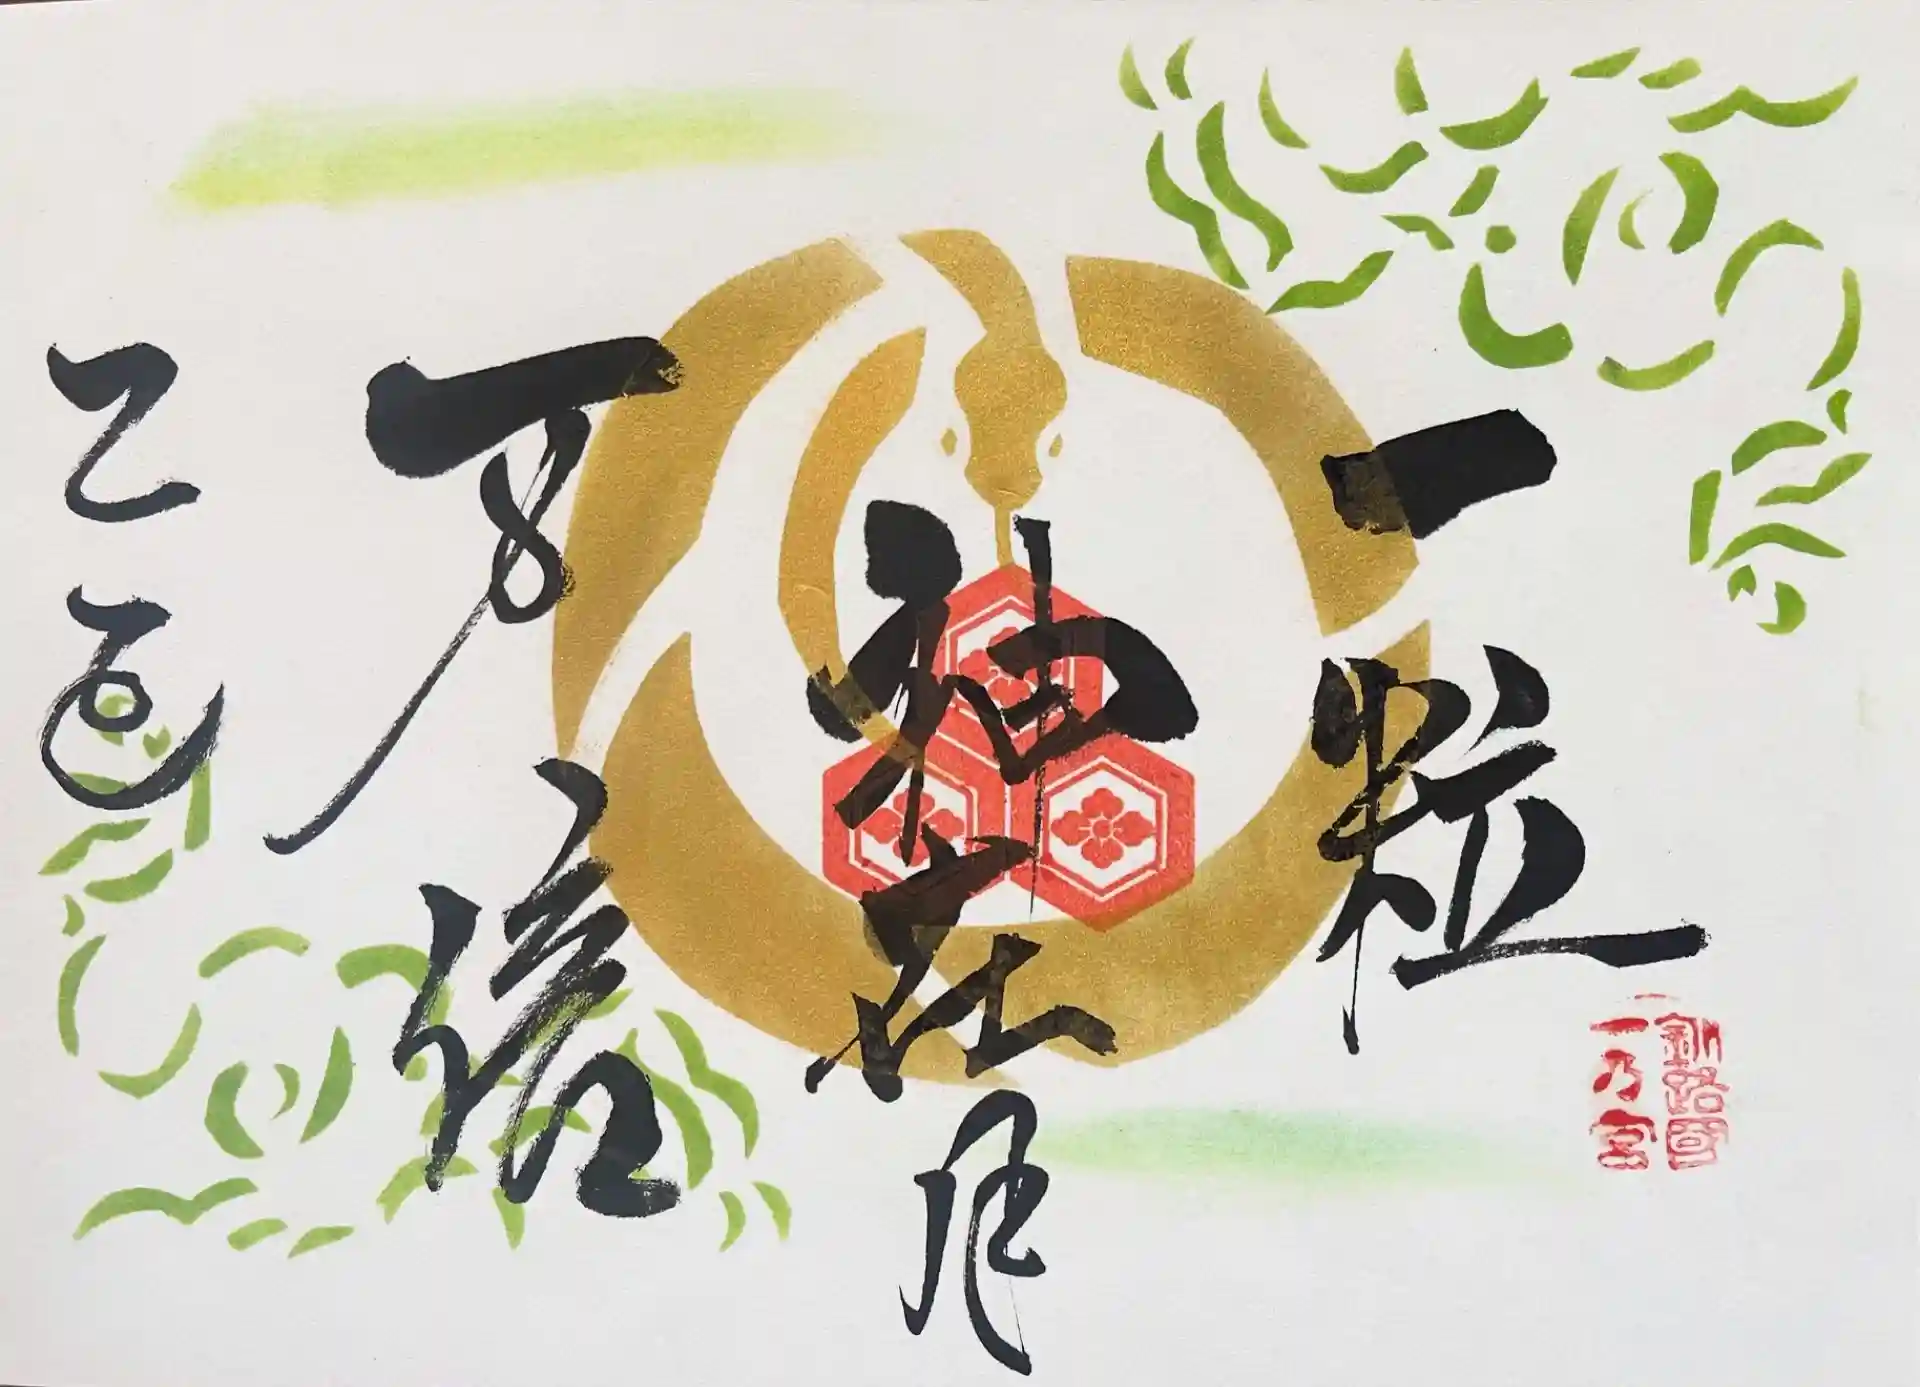 一粒
釧路國
一乃宮
神在月
万倍
乙巳